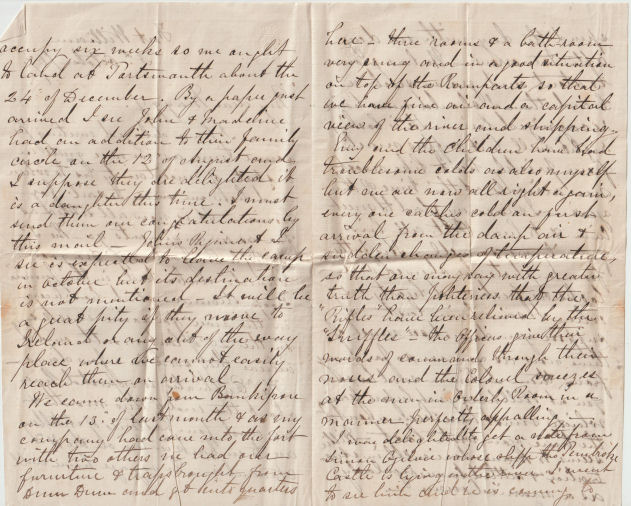 occupy six weeks so we ought
to land at Portsmouth about the
24th of December. By a paper just
arrived I see John & Madeline
had an addition to their family
circle on the 12th of August and
I suppose they are delighted it
is a daughter this time. I must
send them our congratulations by
this mail — John's Regiment I
see is expected to leave the camp
in October but its destination
is not mentioned — It will be
a great pity if they move to
Ireland or any out of the way
place where we cannot easily
reach them on arrival
We came down from Barrackpore
on the 13th of last month & as my
company had come into the fort
with two others we had our
furniture & traps brought from
Dum Dum and got into quarters
here — three rooms & a bath-room
very snug and in a good situation
on top of the Ramparts so that
we have fine air and a capital
view of the river and shipping —
and the children have had
troublesome colds as also myself
but we are now all right again,
every one catches cold on first
arrival from the damp air &
sudden changes of temperature,
so that one may say with greater
truth than politeness that the
"Rifles have been relieved by the
Sniffles — the Officers give their
words of command through their
noses and the Colonel sneezes
at the men in Orderly Room in a
manner perfectly appalling —
I was delighted to get a note from
Simon Ogilvie whose ship the Pembroke
Castle is lying in the river I went
to see him and he is coming to